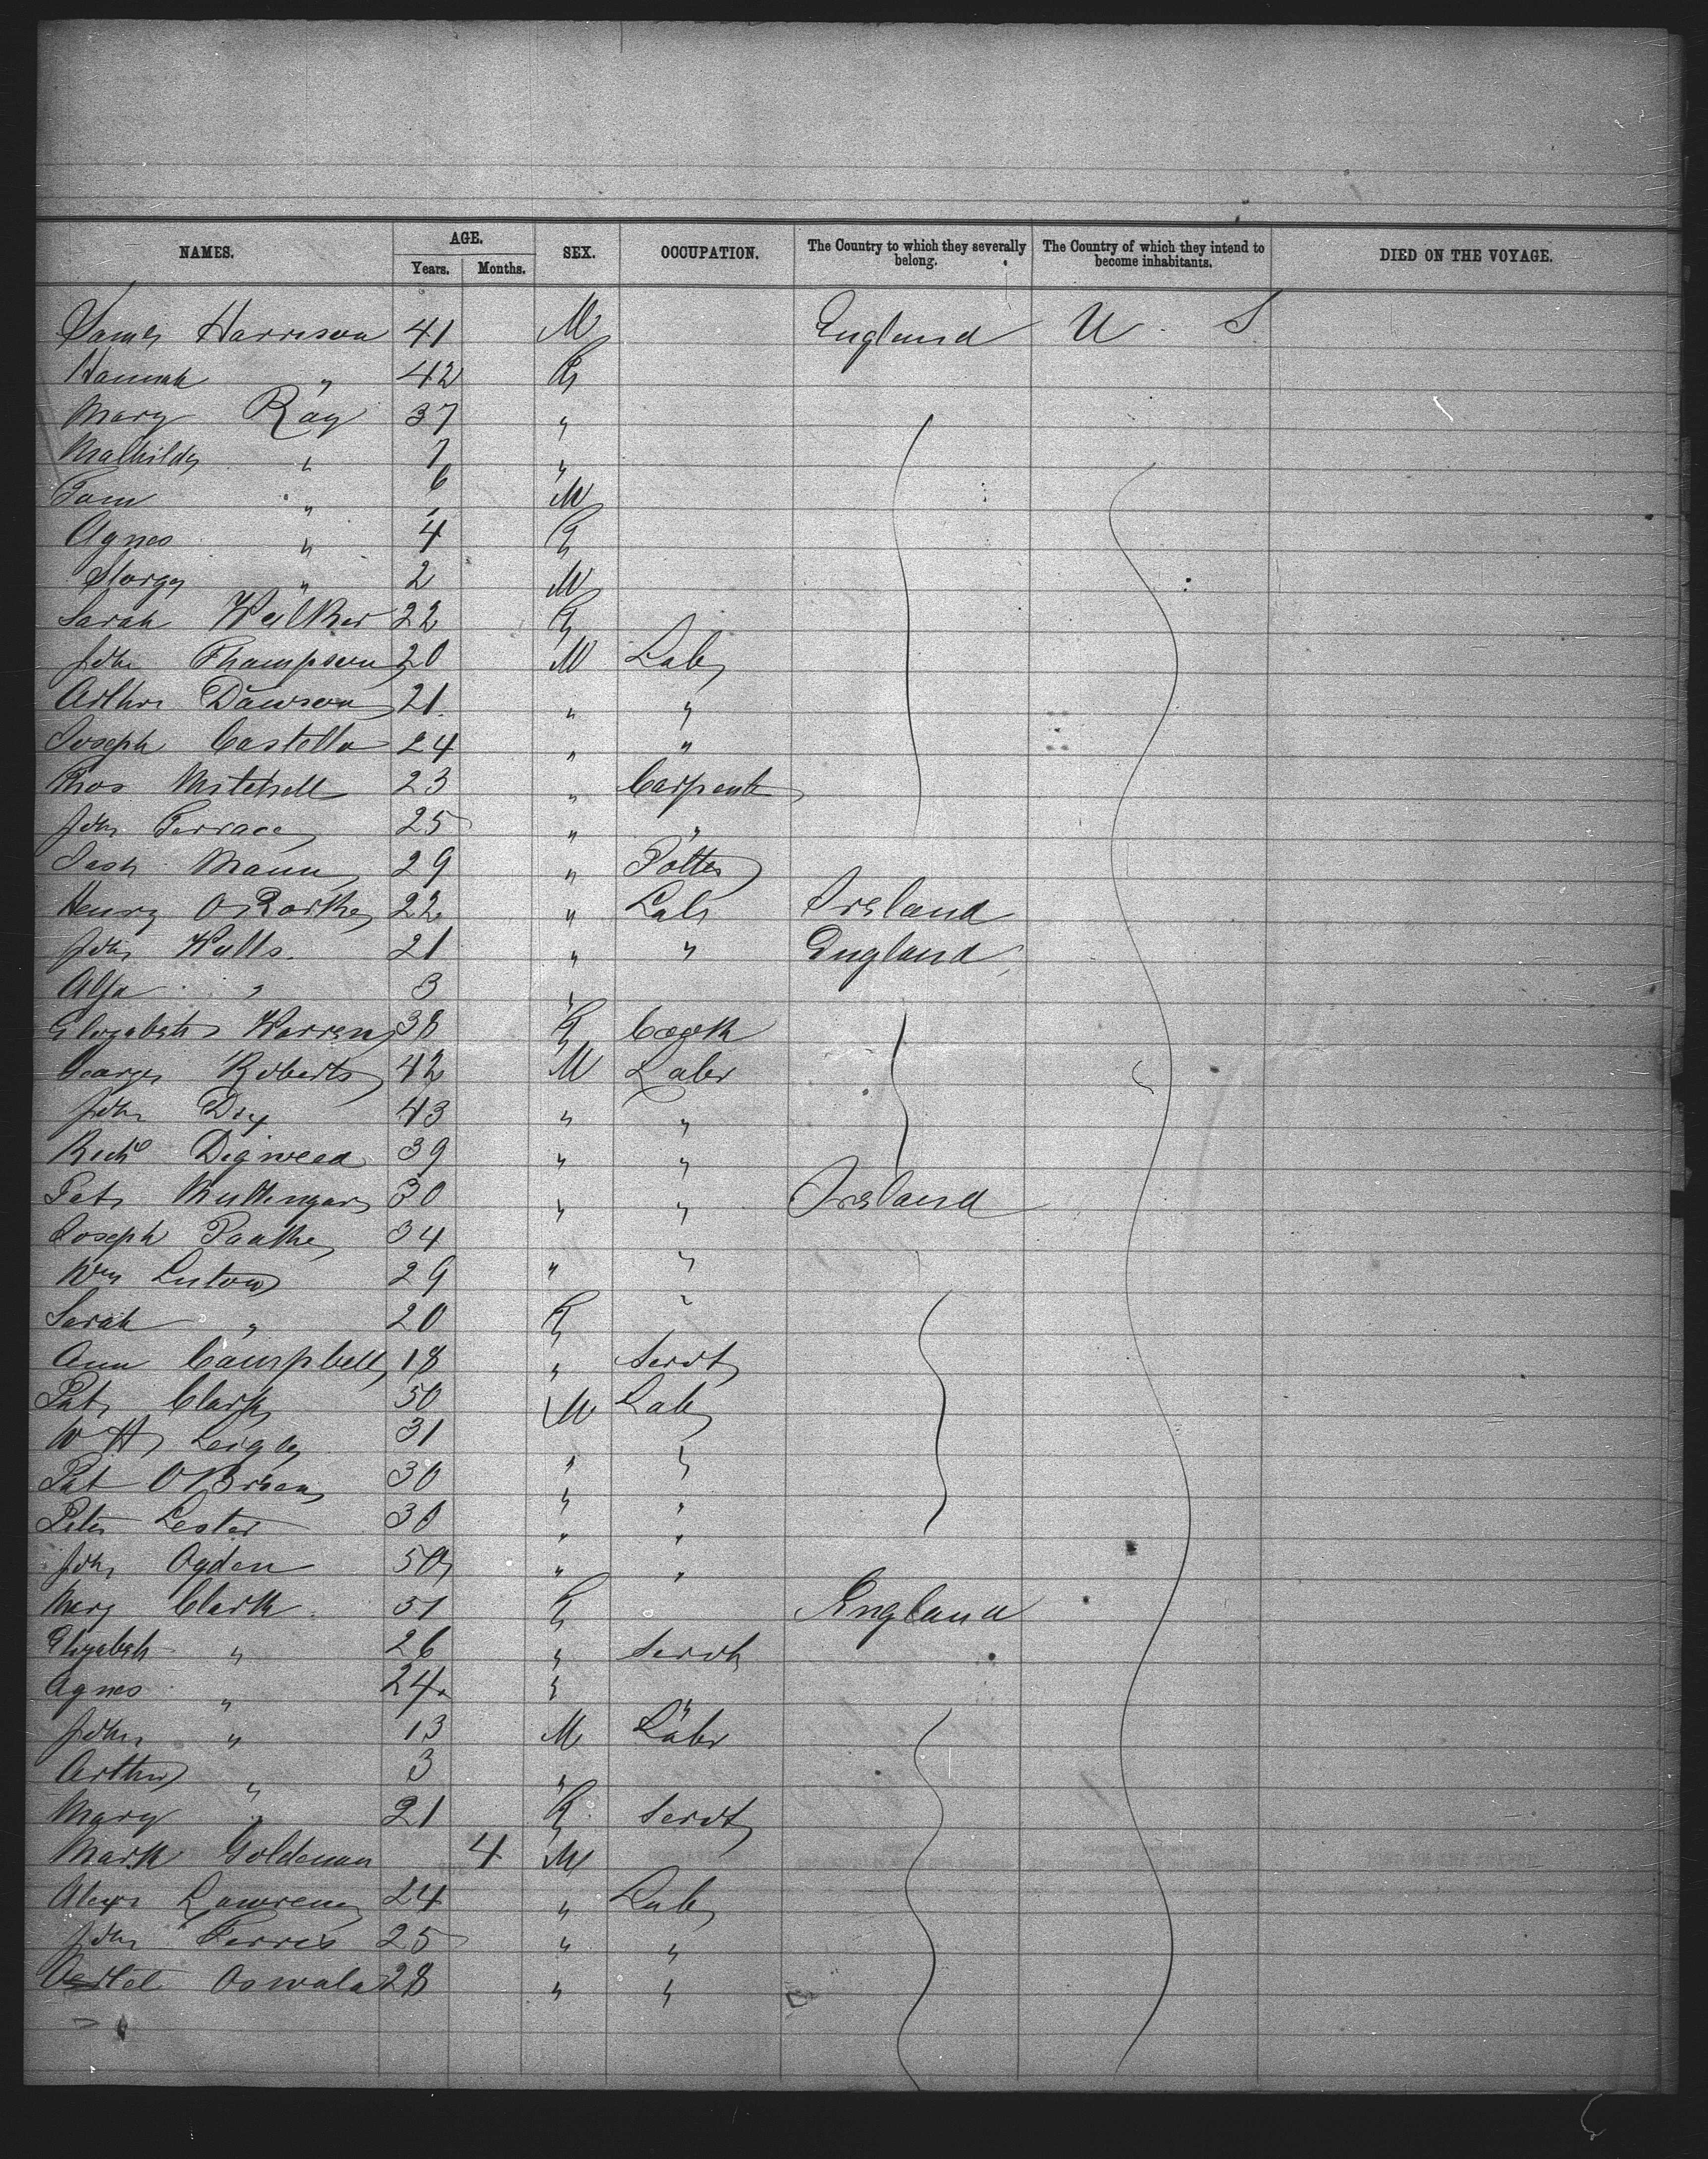 NAMES. AGE. Years. Months. SEX. OCCUPATION. The Country to which they severally belong. The Country of which they intend to become inhabitants. DIED ON THE VOYAGE.
James Harrison 41 M England U S
Hannah " 42 F
Mary Ray 37 "
Mathilda " 7 "
Tom " 6 M
Agnes " 4 F
George " 2 M
Sarah Walker 22 F
John Thompson 20 M Labr
Arthur Dawson 21 " "
Joseph Costello 24 " "
Thos Mitchell 23 " Carpent
John Terrace 25 " "
Mann 29 " Potter
Henry O Rorke 22 " Labr Ireland
John Walls 21 " " England
" 3 "
Elizabeth Warren 38 F Cook
George Roberts 42 M Labr
John Dix 43 " "
Richd Digweed 39 " "
Pat 30 " " Ireland
Joseph 34 "
Wm Luton 29 " "
Sarah " 20 F "
Ann Campbell 18 " Servt
Pat Clark 50 M Labr
W H 31 " "
Pat OBrien 30 " "
Peter Lester 30 " "
John Ogden 50 " "
Mary Clark 51 F England
Elizabeth " 26 " Servt
Agnes " 24 " "
John " 13 M Labr
Arthur " 3 "
Mary " 21 F Servt
Mark Goldman 4 M
Alexr Lawrence 24 " Labr
John Ferris 25 " "
Oswald 28 " "